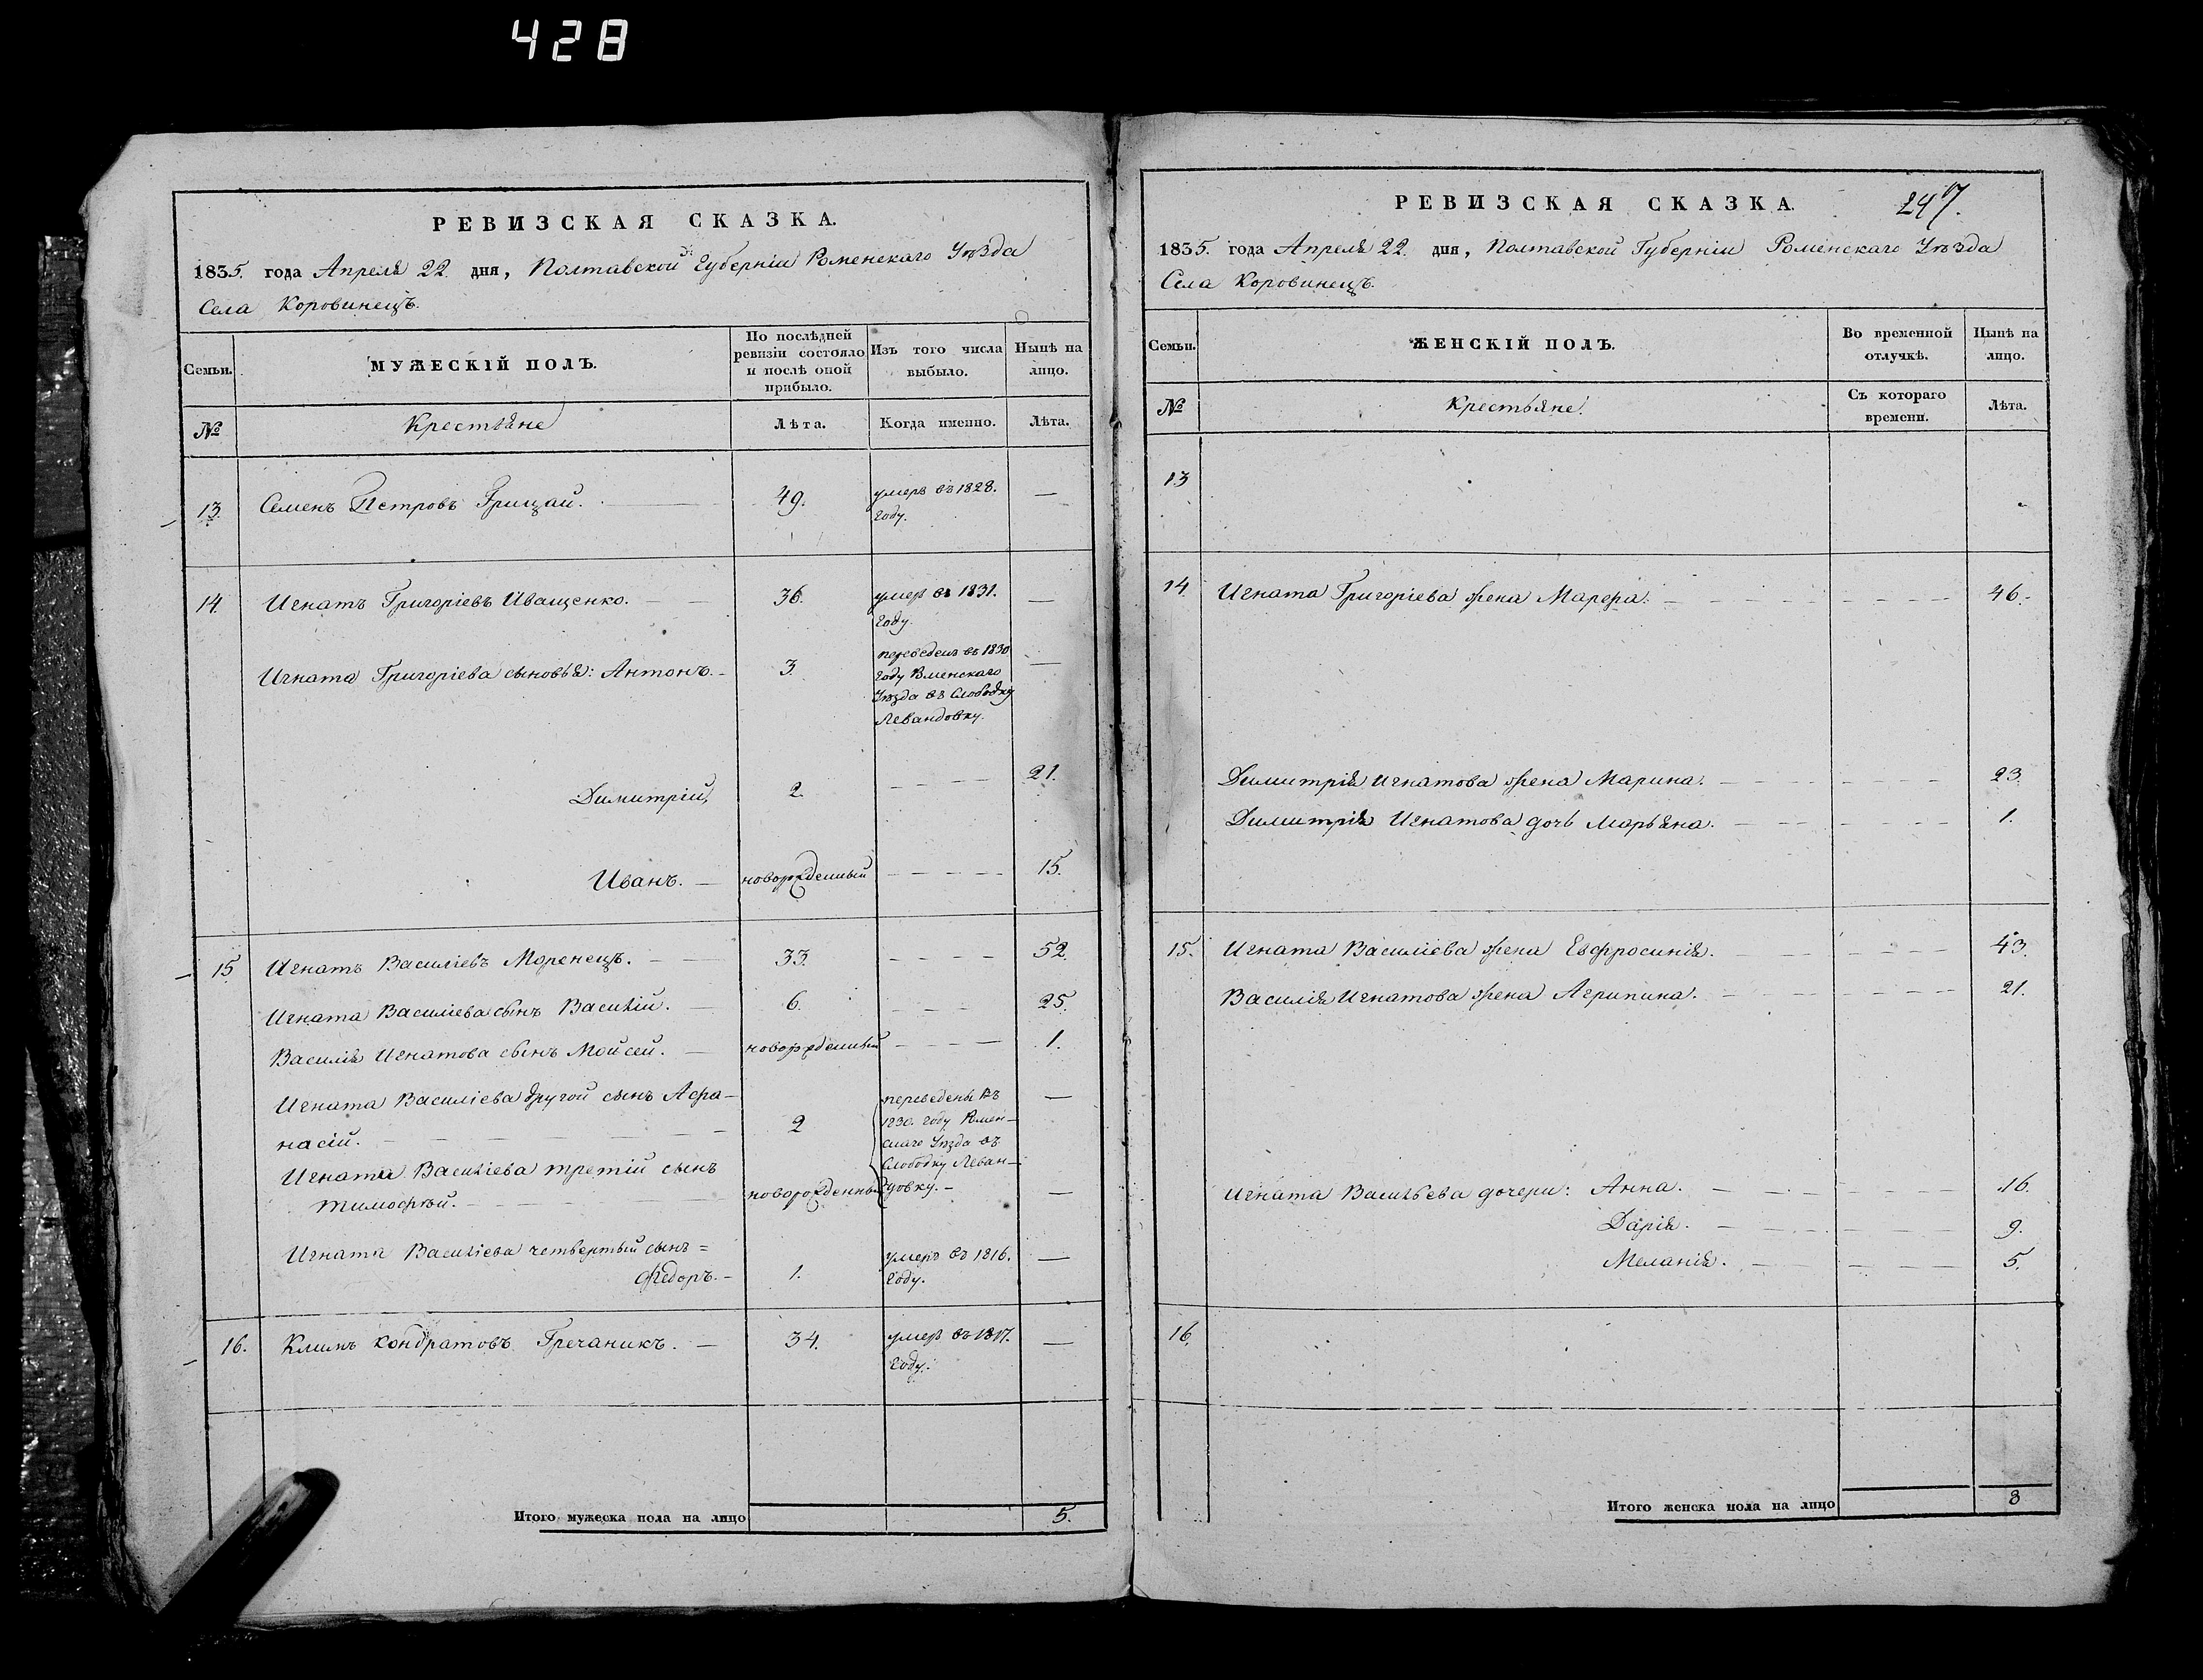 428
РЕВИЗСКАЯ СКАЗКА.
1835. года Апреля 22. дня, Полтавской Губернiи Роменскаго Уѣзда
Села Коровинецъ.
Семьи. МУЖЕСКIЙ ПОЛЪ. По послѣдней ревизiи состояло и послѣ оной прибыло. Изъ того числа выбыло. Нынѣ на лицо.
№ Крестьяне Лѣта. Когда именно. Лѣта.
13. Семенъ Петровъ Грицай. 49. умеръ въ 1828. —
году.
14 Игнатъ Григорiевъ Иващенко. — 36. умеръ въ 1831. —
году.
Игната Григорiева сыновья: Антонъ. - 3. переведенъ въ 1830 —
году Роменскаго
Уѣзда въ Слободку
Левандовку.
Димитрiй, 2. — 21.
Иванъ. — новорожденный — 15.
15 Игнатъ Василiевъ Моренецъ. — 33. — 52.
Игната Василiева сынъ Василiй. — 6. — 25.
Василiя Игнатова сынъ Мойсей. — новорожденный — 1.
Игната Василiева другой сынъ Афа- переведены въ —
насiй. — 2 1830. году Ромен-
скаго Уѣзда въ
Игната Василiева третiй сынъ Слободку Леван-
тимофѣй. — новорожденный довку. — —
Игната Василiева четвертый сынъ = умеръ въ 1816. —
Федоръ. - 1. году.
16. Климъ Кондратовъ Гречаникъ. — 34. умеръ въ 1817. —
году.
Итого мужеска пола на лицо 5.
РЕВИЗСКАЯ СКАЗКА. 247.
1835. года Апреля 22. дня, Полтавской Губернiи Роменскаго Уѣзда
Села Коровинецъ.
Семьи. ЖЕНСКIЙ ПОЛЪ. Во временной отлучкѣ. Нынѣ на лицо.
№ Крестьяне. Съ котораго времени. Лѣта.
13
14 Игната Григорiева жена Марфа. — 46.
Димитрiя Игнатова жена Марина. — 23.
Димитрiя Игнатова дочь Марьяна. — 1.
15. Игната Василiева жена Евфросинiя. — 43.
Василiя Игнатова жена Агрипина. — 21.
Игната Васильева дочери: Анна. — 16.
Дарiя. — 9.
Меланiя. — 5.
16.
Итого женска пола на лицо 8